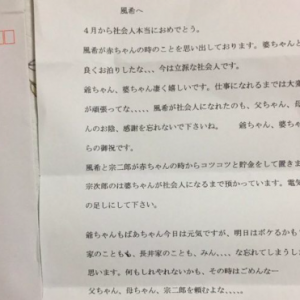 風希へ
４月から社会人本当におめでとう。
風希が赤ちゃんの時のことを思い出しております。婆ちゃんと
良くお泊りしたな、、、今は立派な社会人です。
爺ちゃん、婆ちゃん凄く嬉しいです。仕事になれるまでは大変
が頑張ってな、、、、風希が社会人になれたのも、父ちゃん、母
んのお陰、感謝を忘れないで下さいね。　爺ちゃん、婆ち
らの御祝です。
風希と宗二郎が赤ちゃんの時からコツコツと貯金をして置きま
宗次郎のは婆ちゃんが社会人になるまで預かっています。電気
の足しにして下さい。
爺ちゃんもばあちゃん今日は元気ですが、明日はボケるかも
家のことも、長井家のことも、みん、、、、な忘れてしまうし
思います。何もしれやれないかも、その時はごめんな―
父ちゃん、母ちゃん、宗二郎を頼むよな、、、、。